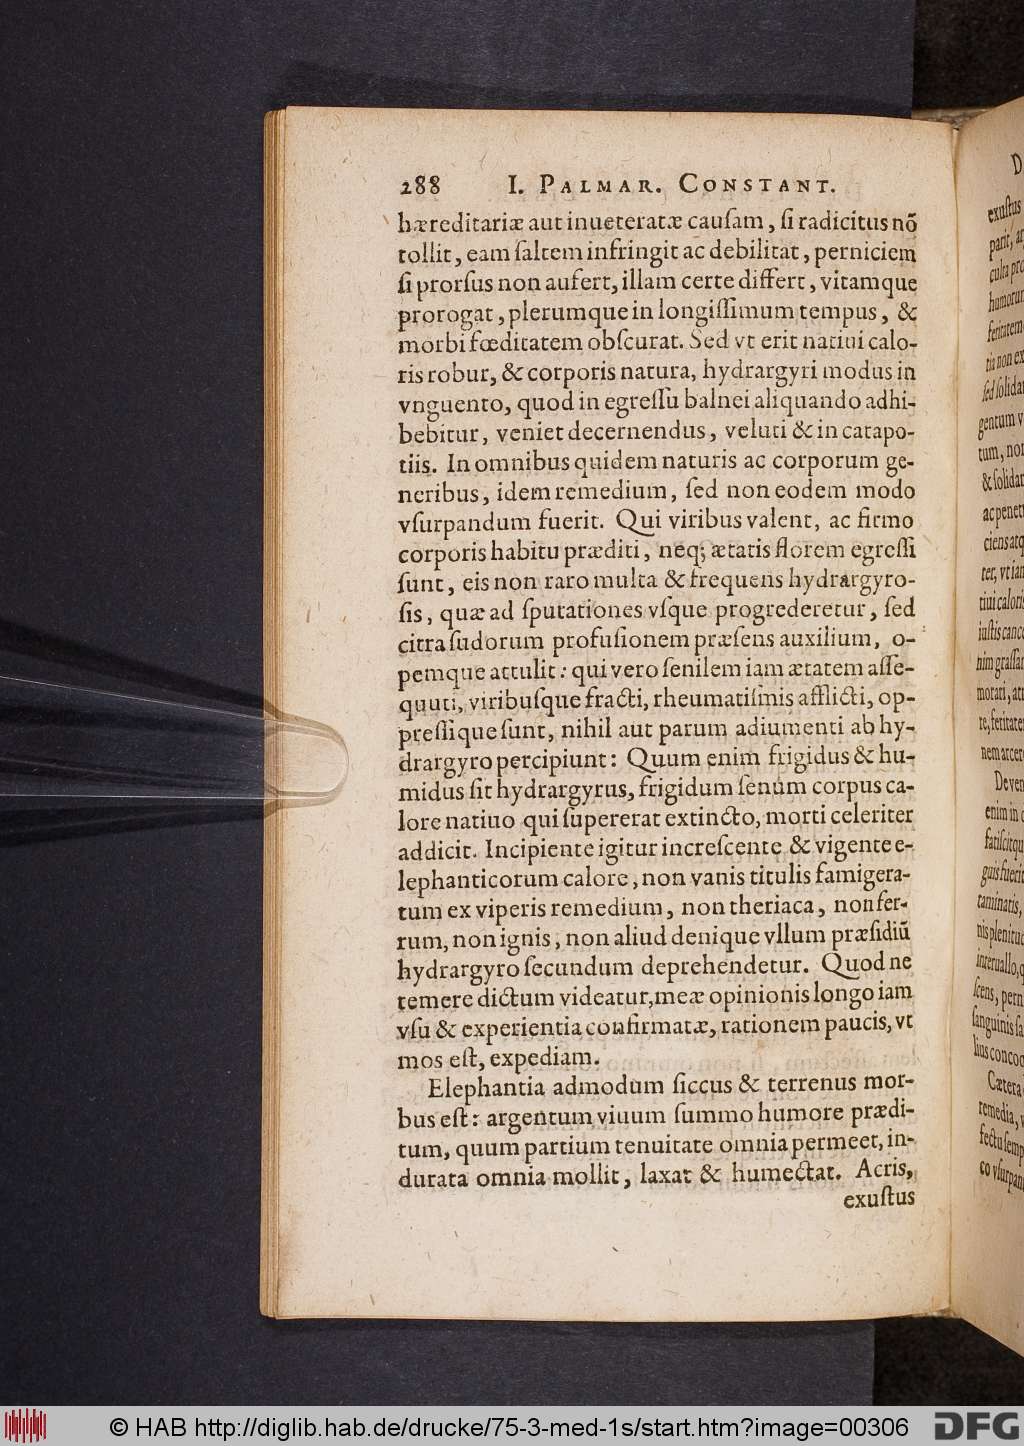 288 I. PALMAR. CONSTANT.
hæreditariæ aut inueteratæ cauſam, ſi radicitus nõ
tollit, eam ſaltem infringit ac debilitat, perniciem
ſi prorſus non aufert, illam certe differt, vitamque
prorogat, plerumque in longiſſimum tempus, &
morbi fœditatem obſcurat. Sed vt erit natiui calo-
ris robur, & corporis natura, hydrargyri modus in
vnguento, quod in egreſſu balnei aliquando adhi-
bebitur, veniet decernendus, veluti & in catapo-
tiis. In omnibus quidem naturis ac corporum ge-
neribus, idem remedium, ſed non eodem modo
vſurpandum fuerit. Qui viribus valent, ac firmo
corporis habitu præditi, neq; ætatis florem egreſſi
ſunt, eis non raro multa & frequens hydrargyro-
ſis, quæ ad ſputationes vſque progrederetur, ſed
citra ſudorum profuſionem præſens auxilium, o-
pemque attulit: qui vero ſenilem iam ætatem aſſe-
quuti, viribuſque fracti, rheumatiſmis afflicti, op-
preſſique ſunt, nihil aut parum adiumenti ab hy-
drargyro percipiunt: Quum enim frigidus & hu-
midus ſit hydrargyrus, frigidum ſenum corpus ca-
lore natiuo qui ſupererat extincto, morti celeriter
addicit. Incipiente igitur increſcente & vigente e-
lephanticorum calore, non vanis titulis famigera-
tum ex viperis remedium, non theriaca, non fer-
rum, non ignis, non aliud denique vllum præſidiũ
hydrargyro ſecundum deprehendetur. Quod ne
temere dictum videatur, meæ opinionis longo iam
vſu & experientia confirmatæ, rationem paucis, vt
mos eſt, expediam.
Elephantia admodum ſiccus & terrenus mor-
bus eſt: argentum viuum ſummo humore prædi-
tum, quum partium tenuitate omnia permeet, in-
durata omnia mollit, laxat & humectat. Acris,
exuſtus
exuſtus
parit,
culta
humorum
feritatem
tia non
ſed ſolidar
gentum
tum, non
& ſolidar
ac penet
ciens atq
ter, vt
tiui caloris
iuſtis
nim graſſar
morari,
te, feritatem
nem
De
enim in
fatiſcit
guis
taminatis,
nis
interuallo,
ſcens,
ſanguinis
lius
Cætera
remedia,
fectu
co
© HAB http://diglib.hab.de/drucke/75-3-med-1s/start.htm?image=00306
DFG